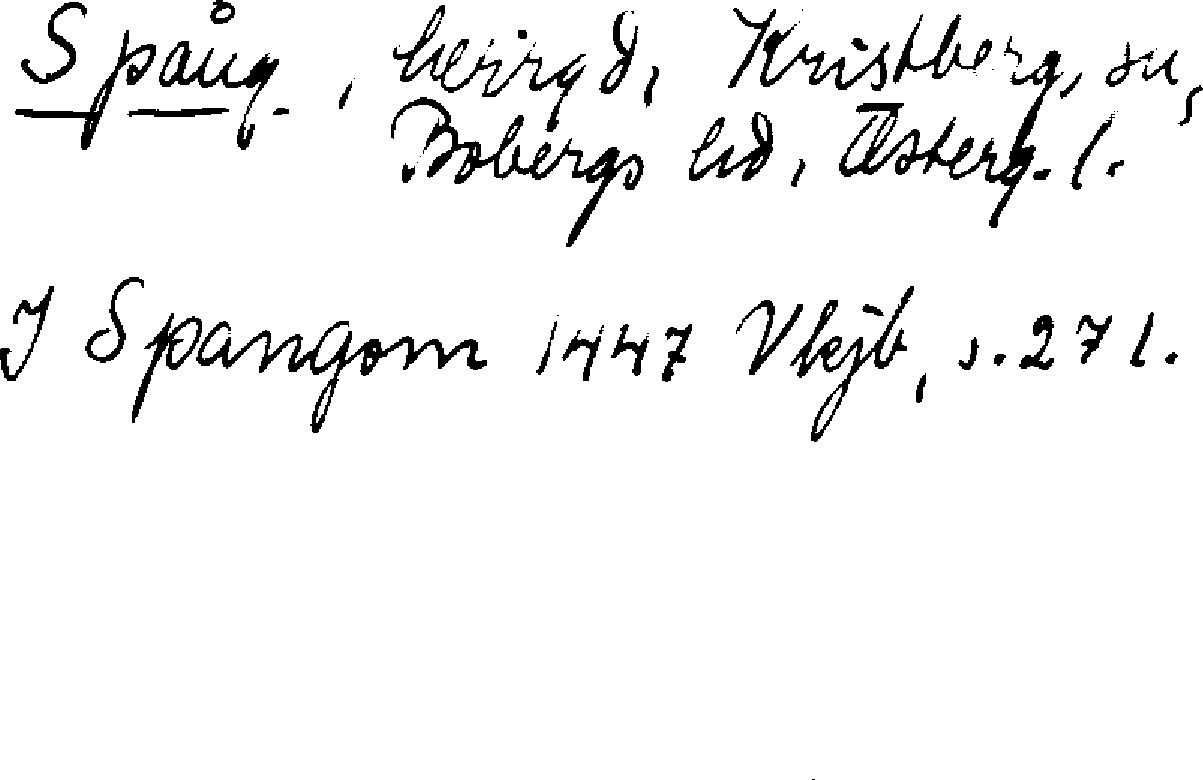 Spång, herrgd, Kristberg, sn,
Bobergs hd, Österg. l.
I Spangom 1447 Vkjb, s. 271.